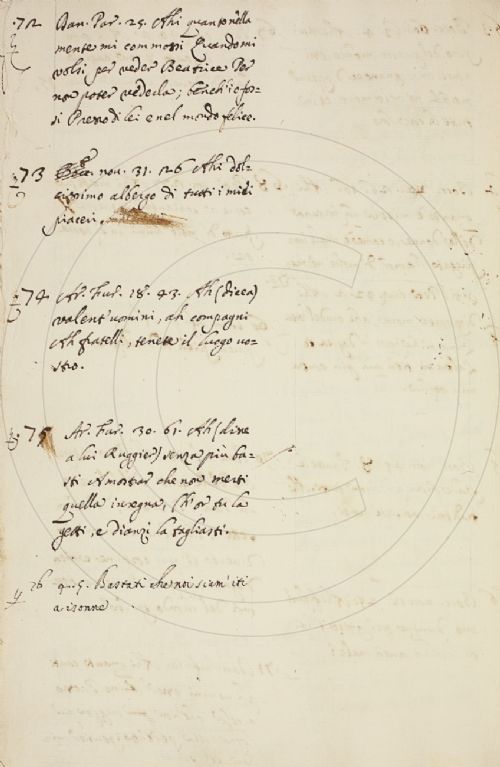 72 Dan. Par. 25. Ahi quanto nella
mente mi commossi Quando mi
volsi per veder Beatrice Per
non poter vederla; bench'io fos-
si Presso di lei e nel mondo felice.
73 nov. 31. 26 Ahi dol-
cissimo albergo di tutti i miei
piaceri.
74 Ar. Fur. 18. 43. Ah (dicea)
valent'uomini, ah compagni
Ah fratelli, tenete il luogo vo-
stro.
75 Ar. Fur. 30. 61. Ah (dice
a lui Ruggier) senza più ba-
sti A mostrar che non merti
quella insegna, Ch'or tu la
getti, e dianzi la tagliasti.
76 9. 5. Bastati che noi siam' iti
a isonne